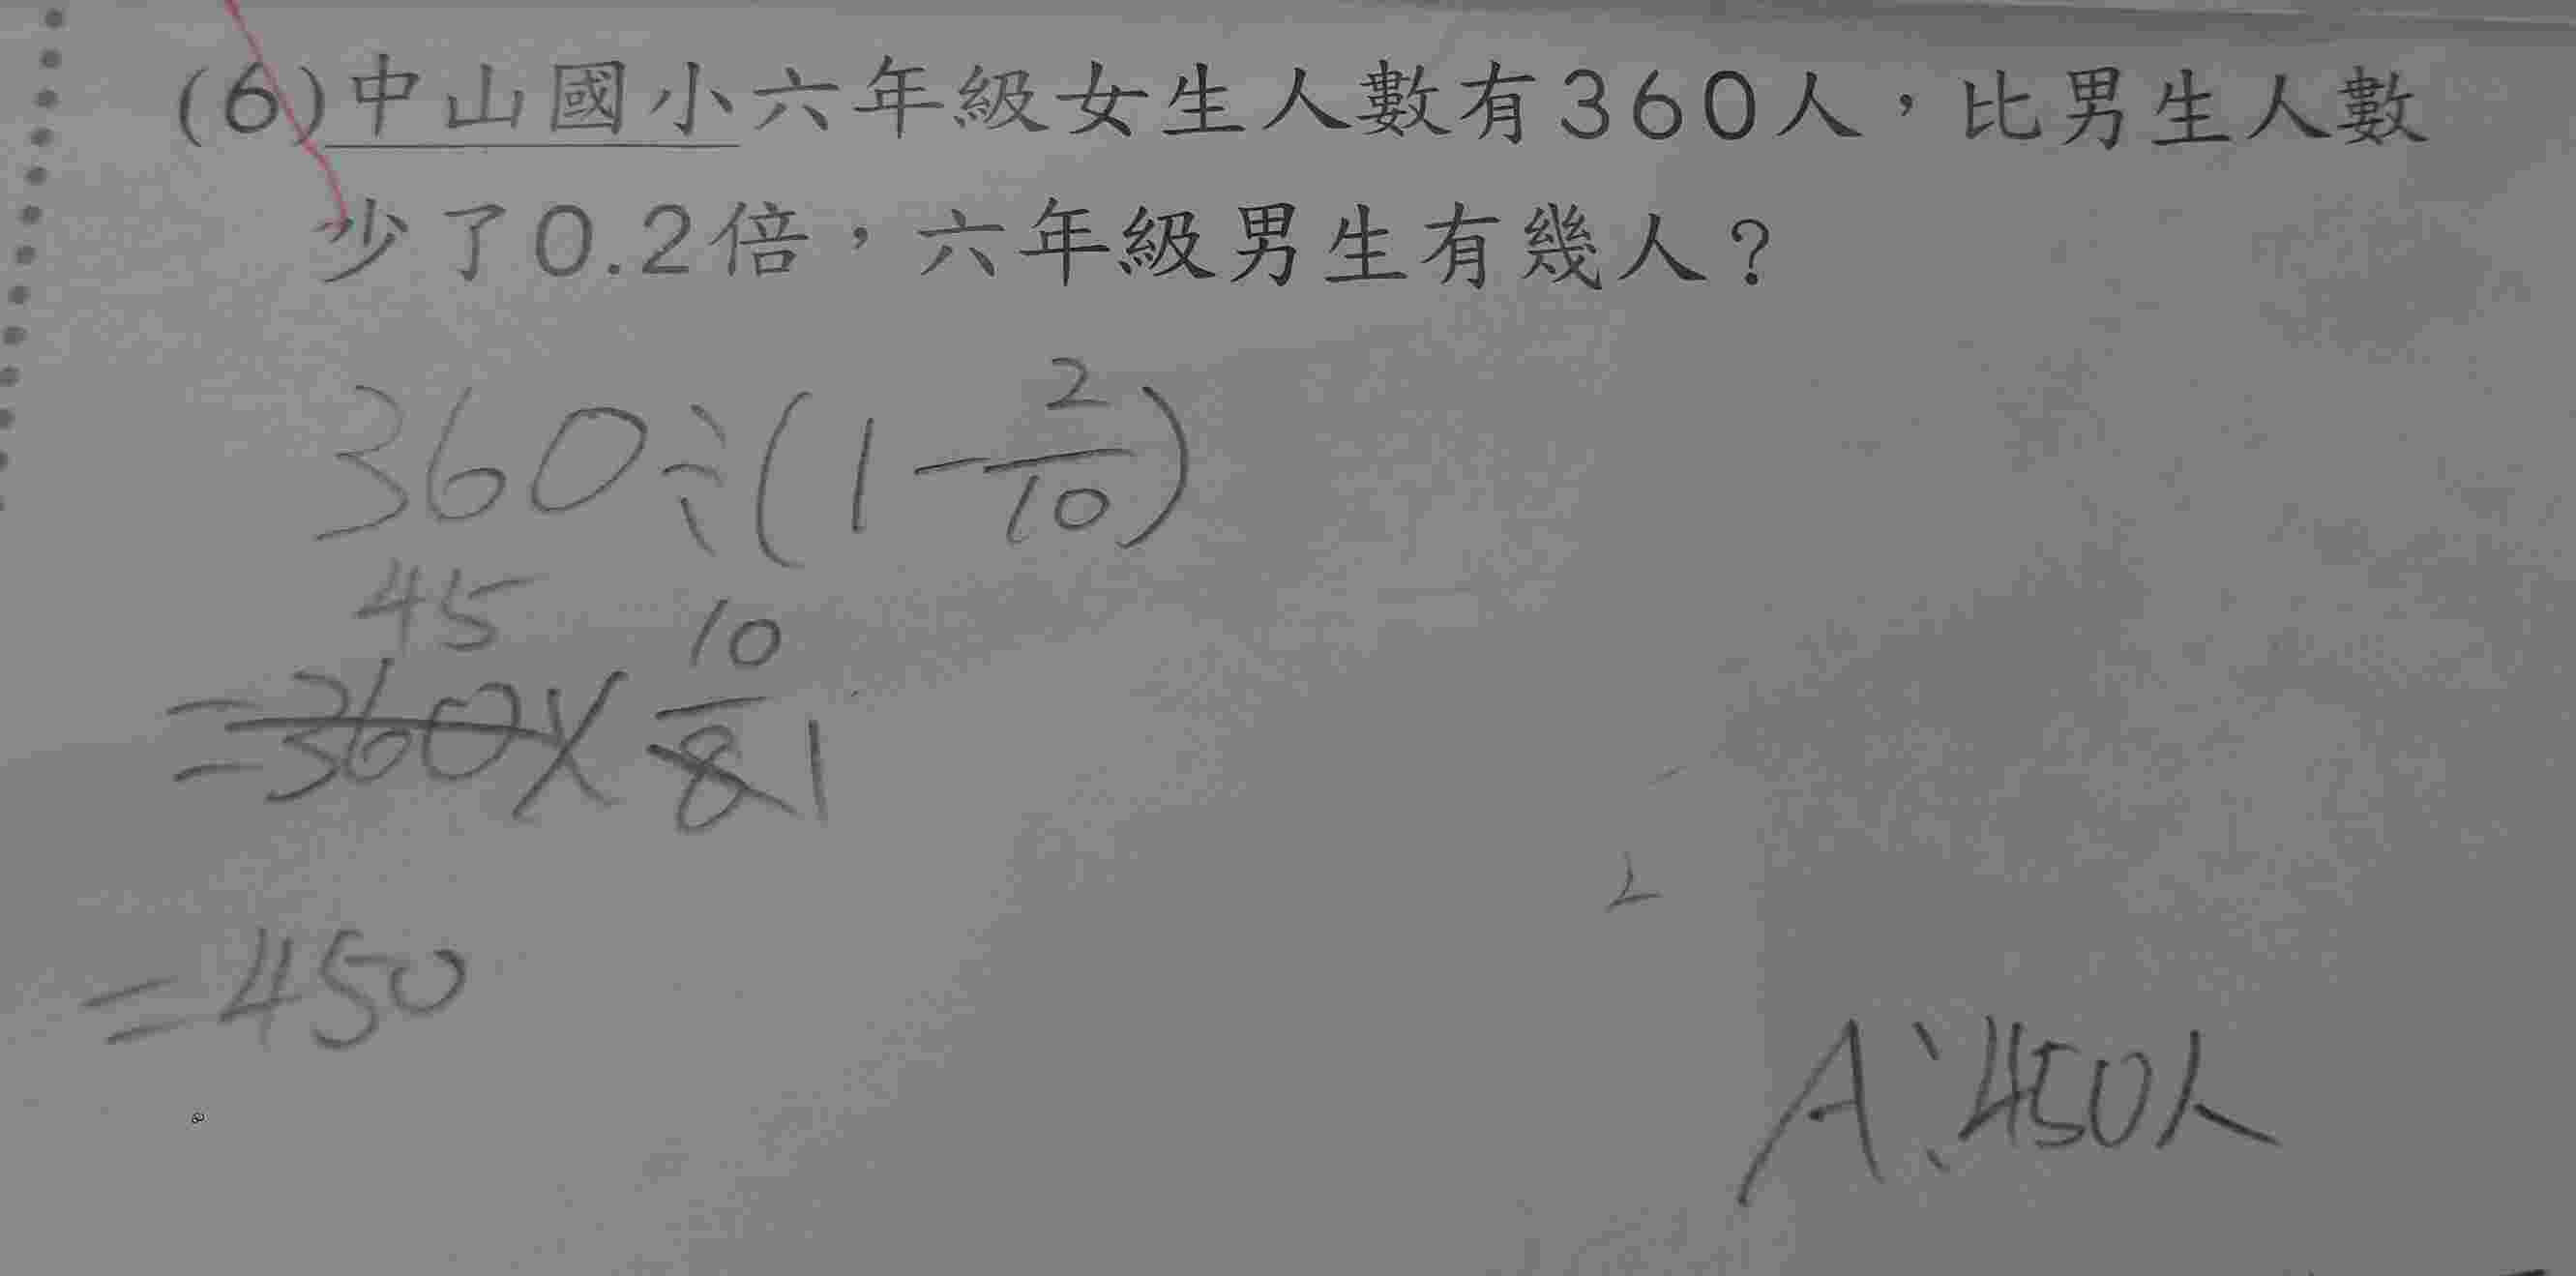 (6)中山國小六年級女生人數有360人，比男生人數
少了0.2倍，六年級男生有幾人？
360÷(1-2/10)
45
=360×10/8 1
=450
A:450人